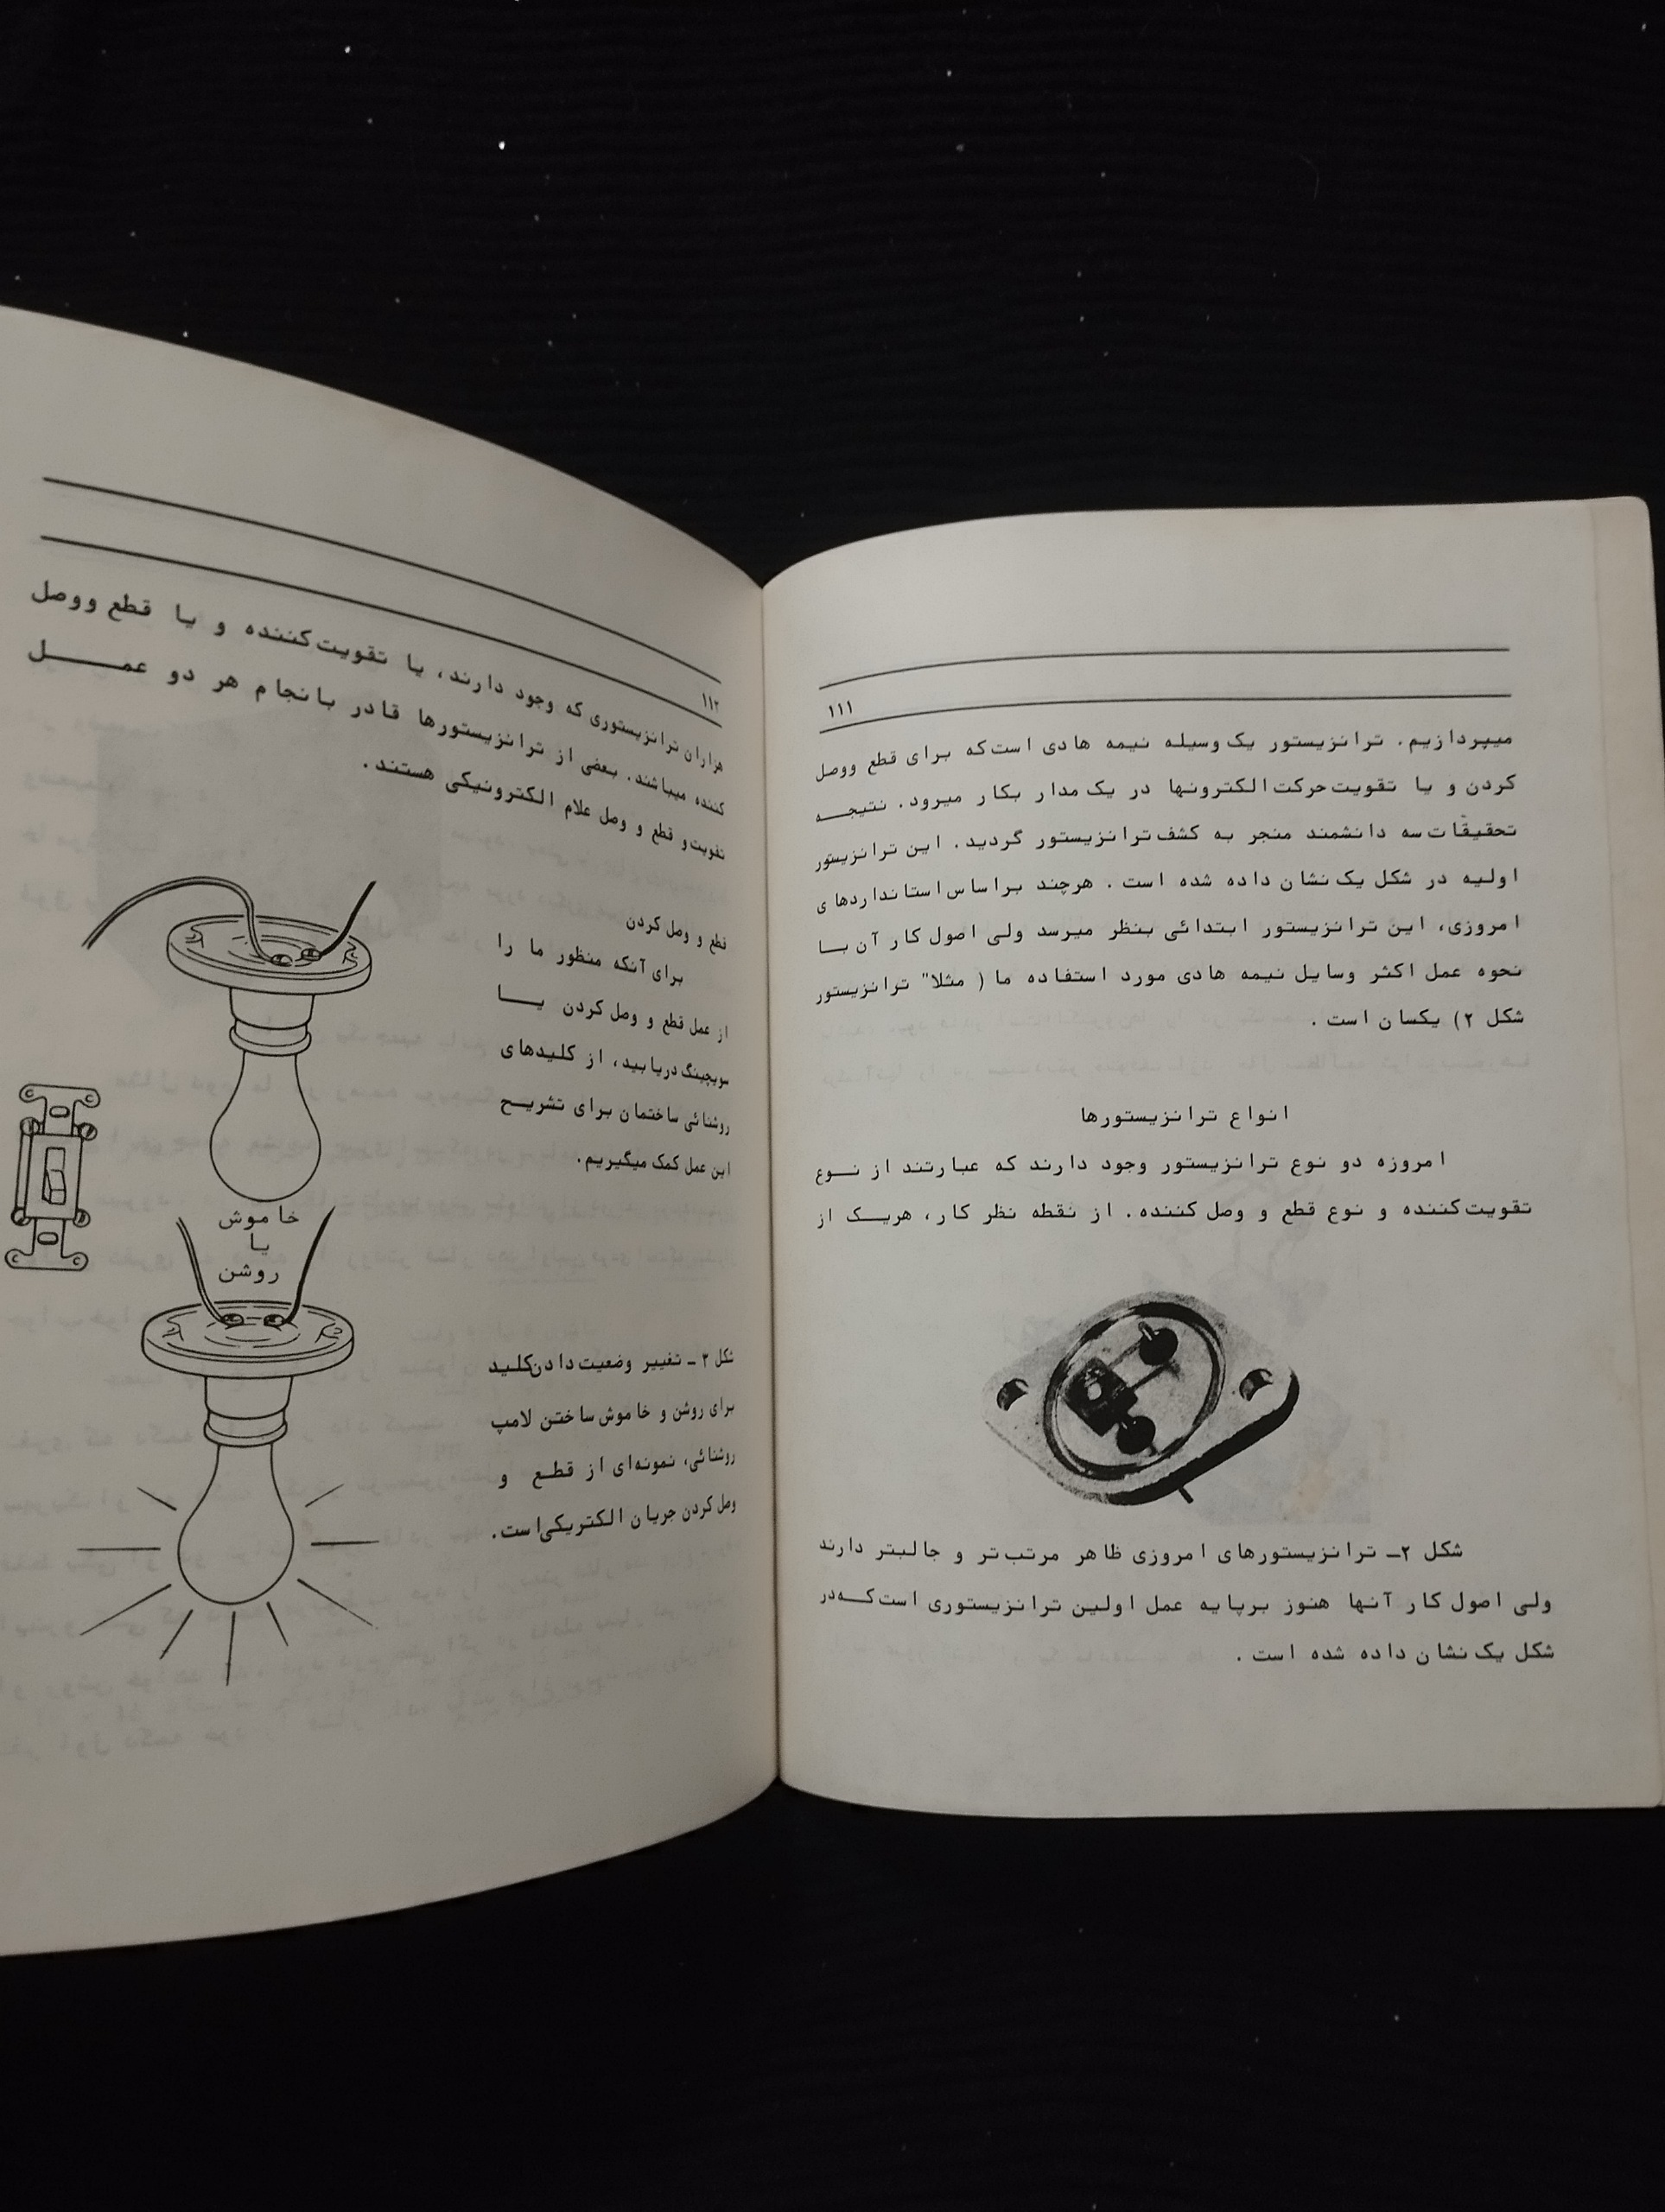 ۱۱۱
میپردازیم. ترانزیستور یک وسیله نیمه هادی است که برای قطع ووصل
کردن و یا تقویت حرکت الکترونها در یک مدار بکار میرود. نتیجه
تحقیقات سه دانشمند منجر به کشف ترانزیستور گردید. این ترانزیستور
اولیه در شکل یک نشان داده شده است. هرچند براساس استانداردهای
امروزی، این ترانزیستور ابتدائی بنظر میرسد ولی اصول کار آن با
نحوه عمل اکثر وسایل نیمه هادی مورد استفاده ما ( مثلا" ترانزیستور
شکل ۲) یکسان است.
انواع ترانزیستورها
امروزه دو نوع ترانزیستور وجود دارند که عبارتند از نوع
تقویت کننده و نوع قطع و وصل کننده. از نقطه نظر کار، هریک از
شکل ۲ـ ترانزیستورهای امروزی ظاهر مرتب تر و جالبتر دارند
ولی اصول کار آنها هنوز برپایه عمل اولین ترانزیستوری است که در
شکل یک نشان داده شده است.
۱۱۲
هزاران ترانزیستوری که وجود دارند، یا تقویت کننده و یا قطع ووصل
کننده میباشند. بعضی از ترانزیستورها قادر بانجام هر دو عمل
تقویت و قطع و وصل علام الکترونیکی هستند.
قطع و وصل کردن
برای آنکه منظور ما را
از عمل قطع و وصل کردن یا
سویچینگ دریابید، از کلیدهای
روشنائی ساختمان برای تشریح
این عمل کمک میگیریم.
خاموش
یا
روشن
شکل ۳ ـ تغییر وضعیت دادن کلید
برای روشن و خاموش ساختن لامپ
روشنائی، نمونه‌ای از قطع و
وصل کردن جریان الکتریکی است.